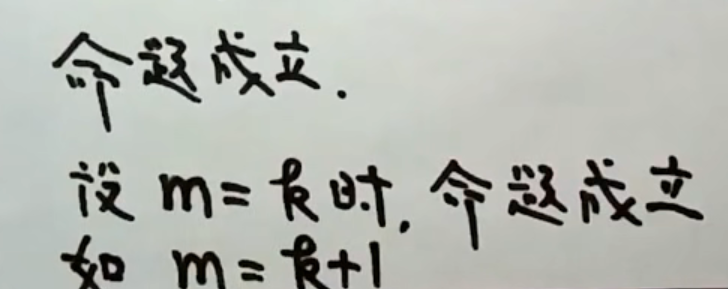 命题成立.
设 m=k时,命题成立
如 m=k+1